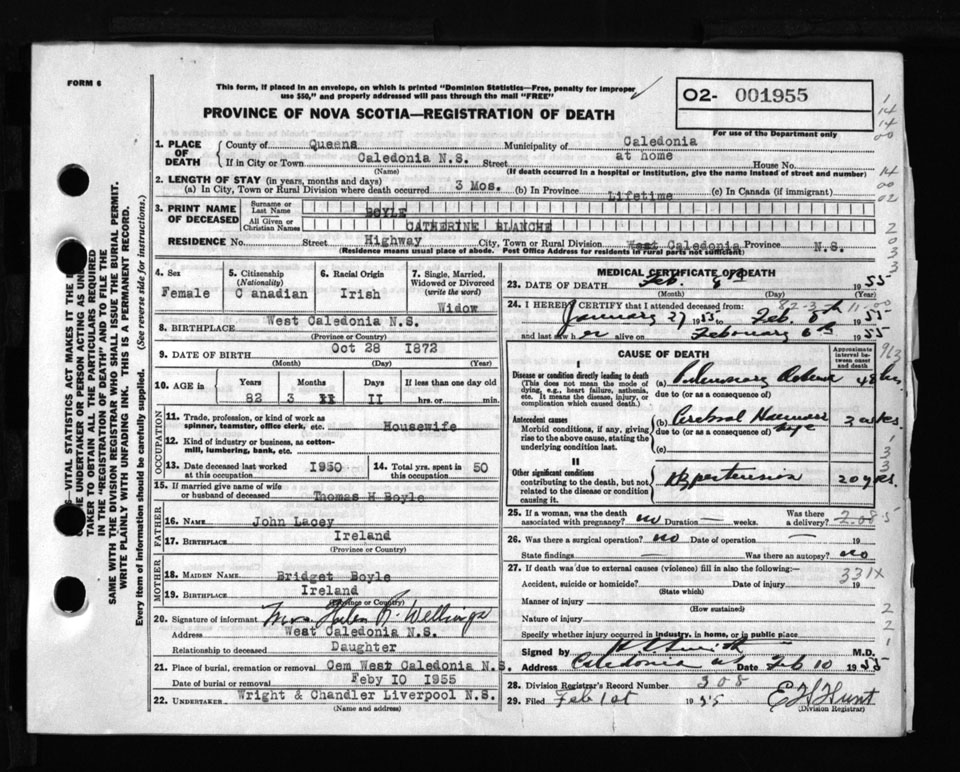 FORM 6
This form, if placed in an envelope, on which is printed "Dominion Statistics—Free, penalty for improper
use $50," and properly addressed will pass through the mail "FREE"
PROVINCE OF NOVA SCOTIA—REGISTRATION OF DEATH
O2- 001955
For use of the Department only
1. PLACE OF DEATH
County of Queens Municipality of Caledonia
If in City or Town Caledonia N.S. Street at home House No.
(Name) (If death occurred in a hospital or institution, give the name instead of street and number)
2. LENGTH OF STAY (in years, months and days)
(a) In City, Town or Rural Division where death occurred 3 Mos. (b) In Province Lifetime (c) In Canada (if immigrant)
3. PRINT NAME OF DECEASED
Surname or Last Name BOYLE
All Given or Christian Names CATHERINE BLANCHE
RESIDENCE No. Street Highway City, Town or Rural Division West Caledonia Province N.S.
(Residence means usual place of abode. Post Office Address for residents in rural parts not sufficient)
4. Sex Female
5. Citizenship (Nationality) Canadian
6. Racial Origin Irish
7. Single, Married, Widowed or Divorced (write the word) Widow
8. BIRTHPLACE West Caledonia N.S.
(Province or Country)
9. DATE OF BIRTH Oct 28 1872
(Month) (Day) (Year)
10. AGE in Years Months Days If less than one day old
82 3 II hrs. or min.
OCCUPATION
11. Trade, profession, or kind of work as
spinner, teamster, office clerk, etc. Housewife
12. Kind of industry or business, as cotton-
mill, lumbering, bank, etc.
13. Date deceased last worked at this occupation 1950
14. Total yrs. spent in this occupation 50
15. If married give name of wife
or husband of deceased Thomas H Boyle
FATHER
16. NAME John Lacey
17. BIRTHPLACE Ireland
(Province or Country)
MOTHER
18. MAIDEN NAME Bridget Boyle
19. BIRTHPLACE Ireland
(Province or Country)
20. Signature of informant Mrs. Helen R.
Address West Caledonia N.S.
Relationship to deceased Daughter
21. Place of burial, cremation or removal Cem West Caledonia N.S.
Date of burial or removal Feby IO 1955
22. UNDERTAKER Wright & Chandler Liverpool N.S.
(Name and address)
MEDICAL CERTIFICATE OF DEATH
23. DATE OF DEATH Feb. 8th 1955
(Month) (Day) (Year)
24. I HEREBY CERTIFY that I attended deceased from:
January 27 1955 to Feb. 8th 1955
and last saw her alive on February 6th 1955
CAUSE OF DEATH
Approximate interval between onset and death
I
Disease or condition directly leading to death
(This does not mean the mode of
dying, e.g., heart failure, asthenia,
etc. It means the disease, injury, or
complication which caused death.)
(a) Pulmonary 48 hrs.
due to (or as a consequence of)
Antecedent causes
Morbid conditions, if any, giving
rise to the above cause, stating the
underlying condition last.
(b) Cerebral Hemorrhage
due to (or as a consequence of)
(c)
II
Other significant conditions
contributing to the death, but not
related to the disease or condition
causing it.
Hypertension 20 yrs.
25. If a woman, was the death
associated with pregnancy? no Duration — weeks. Was there a delivery?
26. Was there a surgical operation? no Date of operation — 19
State findings — Was there an autopsy? no
27. If death was due to external causes (violence) fill in also the following:—
331X
Accident, suicide or homicide? Date of injury 19
(State which)
Manner of injury
(How sustained)
Nature of injury
Specify whether injury occurred in industry, in home, or in public place
Signed by M.D.
Address Caledonia Date Feb 10 1955
28. Division Registrar's Record Number 308
29. Filed Feb 1st 1955 E H Hunt
(Division Registrar)
TAKER TO OBTAIN ALL THE PARTICULARS REQUIRED
IN THE "REGISTRATION OF DEATH" AND TO FILE THE
SAME WITH THE DIVISION REGISTRAR WHO SHALL ISSUE THE BURIAL PERMIT.
WRITE PLAINLY WITH UNFADING INK. THIS IS A PERMANENT RECORD.
Every item of information should be carefully supplied. (See reverse side for instructions.)